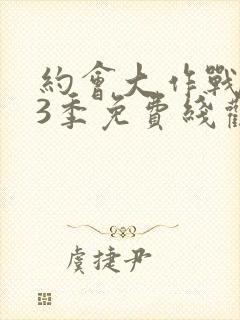 約會大作戰
3季免費綫觀
虞捷尹